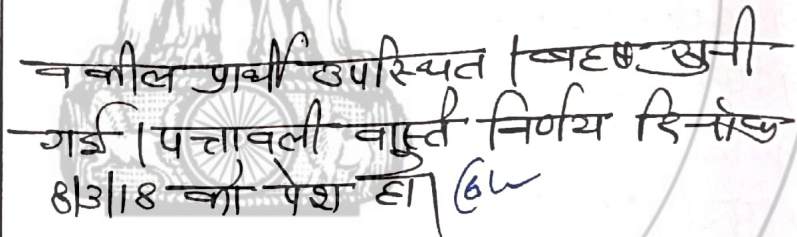 वकील प्रार्थी उपस्थित । बहस सुनी
गई । पत्रावली वास्ते निर्णय दिनांक
8/3/18 को पेश हो